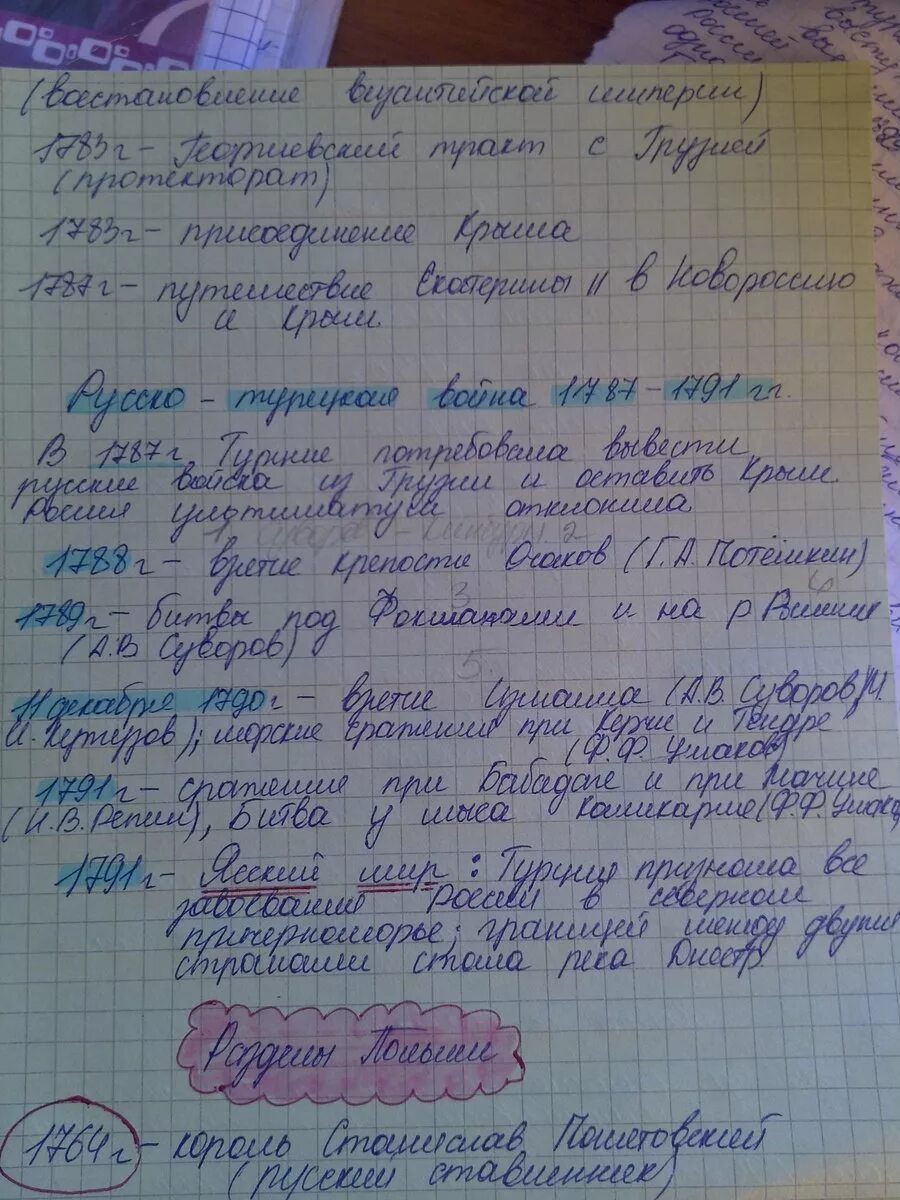 (восстановление византийской империи)
1783г – Георгиевский тракт с Грузией
(протекторат)
1783г – присоединение Крыма
1787г – путешествие Екатерины II в Новороссию
и Крым.
Русско – турецкая война 1787 – 1791 гг.
В 1787г. Турция потребовала вывести
русские войска из Грузии и оставить Крым.
Россия ультиматум отклонила
2
1788г – взятие крепости Очаков (Г.А. Потёмкин)
3 4
1789г – битвы под Фокшанами и на р Рымник
(А.В Суворов)
5.
11 декабря 1790г – взятие Измаила (А.В. Суворов, М.
И. Кутузов); морские сражения при Керчи и Тендре
(Ф.Ф. Ушаков)
1791г – сражение при Бабадаге и при Мачине
(Н.В. Репин), Битва у мыса Каликарие (Ф.Ф. Ушаков
1791г – Ясский мир: Турция признала все
завоевания России в северном
причерноморье; границей между двумя
странами стала река Днестр.
Разделы Польши
1764г – король Станислав Понятовский
(русский ставленник)